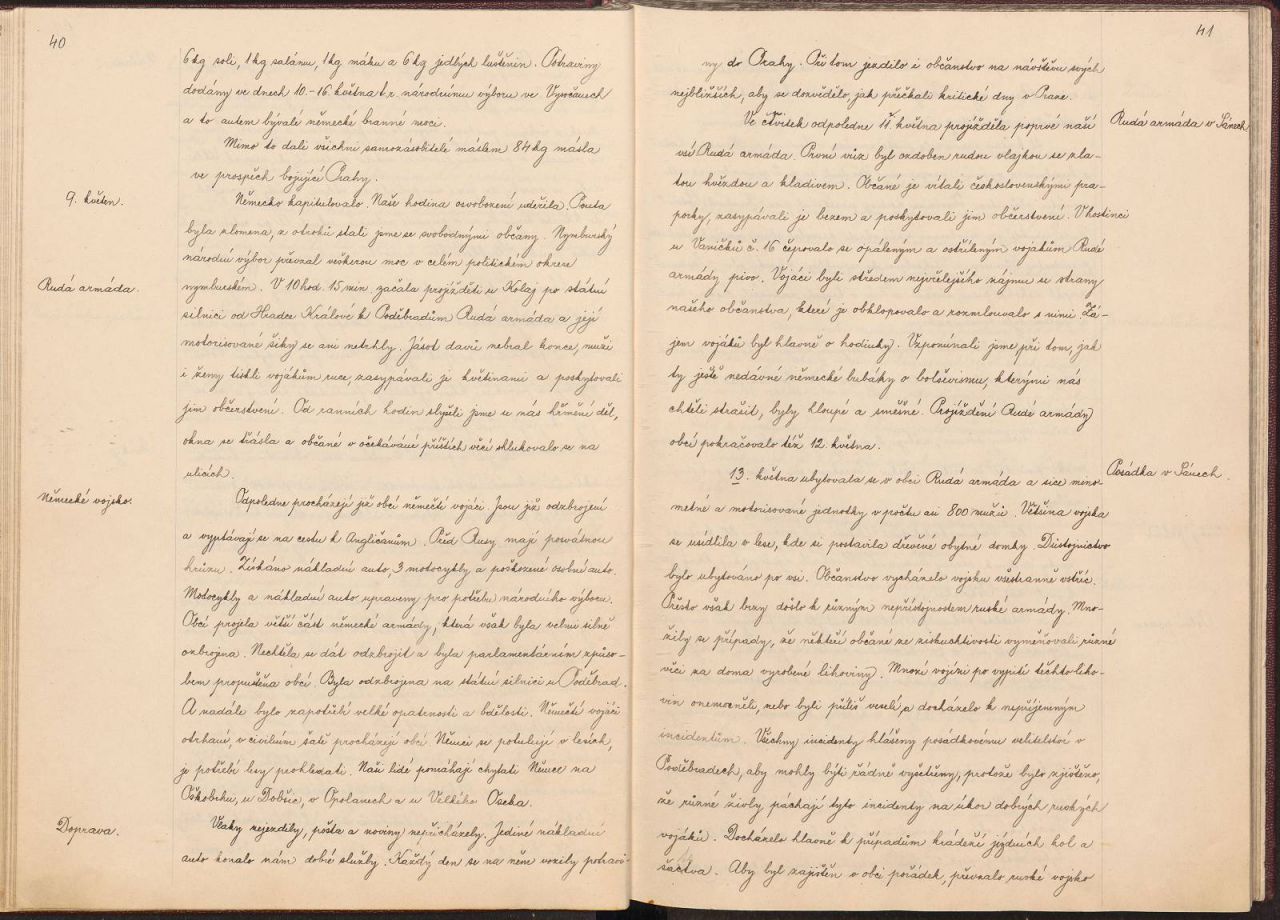 40
6 kg soli, 1 kg salámu, 1 kg máku a 6 kg jedlých luštěnin. Potraviny
dodány ve dnech 10.-16. května t.r. národnímu výboru ve Vysočanech
a to autem bývalé německé branné moci.
Mimo to dali všichni samozásobitelé máslem 84 kg másla
ve prospěch bojující Prahy.
9. květen.
Německo kapitulovalo. Naše hodina osvobození udeřila. Pouta
byla zlomena, z otroků stali jsme se svobodnými občany. Nymburský
národní výbor převzal veškerou moc v celém politickém okrese
Rudá armáda.
nymburském. V 10 hod. 15 min. začala projížděti u Kolaj po státní
silnici od Hradce Králové k Poděbradům Rudá armáda a její
motorisované šiky se ani netrhly. Jásot davů nebral konce, muži
i ženy tiskli vojákům ruce, zasypávali je květinami a poskytovali
jim občerstvení. Od ranních hodin slyšeli jsme u nás hřmění děl,
okna se třásla a občané v očekávání příštích věcí shlukovalo se na
ulicích.
Německé vojsko.
Odpoledne procházejí již obcí němečtí vojáci. Jsou již odzbrojeni
a vyptávají se na cestu k Angličanům. Před Rusy mají posvátnou
hrůzu. Získáno nákladní auto, 3 motocykly a poškozené osobní auto.
Motocykly a nákladní auto upraveny pro potřebu národního výboru.
Obcí projela větší část německé armády, která však byla velmi silně
ozbrojena. Nechtěla se dát odzbrojit a byla parlamentárním způso-
bem propuštěna obcí. Byla odzbrojena na státní silnici u Poděbrad.
A nadále bylo zapotřebí velké opatrnosti a bdělosti. Němečtí vojáci
otrhaní, v civilním šatě procházejí obcí. Němci se potulují v lesích,
je potřebí lesy prohledati. Naši lidé pomáhají chytati Němce na
Oškobrhu, u Dobšic, v Opolanech a u Velkého Oseka.
Doprava.
Vlaky nejezdily, pošta a noviny nepřicházely. Jediné nákladní
auto konalo nám dobré služby. Každý den se na něm vozily potravi-
41
ny do Prahy. Při tom jezdilo i občanstvo na návštěvu svých
nejbližších, aby se dozvědělo, jak přečkali kritické dny v Praze.
Rudá armáda v Sánech
Ve čtvrtek odpoledne 11. května projížděla poprvé naší
vsí Rudá armáda. První vůz byl ozdoben rudou vlajkou se zla-
tou hvězdou a kladivem. Občané je vítali československými pra-
porky, zasypávali je bezem a poskytovali jim občerstvení. V hostinci
u Vaníčků č. 16 čepovalo se opáleným a ostříleným vojákům Rudé
armády pivo. Vojáci byli středem nejvřelejšího zájmu se strany
našeho občanstva, které je obklopovalo a rozmlouvalo s nimi. Zá-
jem vojáků byl hlavně o hodinky. Vzpomínali jsme při tom, jak
ty ještě nedávné německé bubáky o bolševismu, kterými nás
chtěli strašit, byly hloupé a směšné. Projíždění Rudé armády
obcí pokračovalo též 12. května.
Posádka v Sánech.
13. května ubytovala se v obci Rudá armáda a sice mino-
metné a motorisované jednotky v počtu asi 800 mužů. Většina vojska
se usídlila v lese, kde si postavila dřevěné obytné domky. Důstojnictvo
bylo ubytováno po vsi. Občanstvo vycházelo vojsku všestranně vstříc.
Přesto však brzy došlo k různým nepřístojnostem ruské armády. Mno-
žily se případy, že někteří občané ze ziskuchtivosti vyměňovali různé
věci za doma vyrobené lihoviny. Mnozí vojíni po vypití těchto liho-
vin onemocněli, nebo byli příliš veselí, a docházelo k nepříjemným
incidentům. Všechny incidenty hlášeny posádkovému velitelství v
Poděbradech, aby mohly býti řádně vyšetřeny, protože bylo zjištěno,
že různé živly páchají tyto incidenty na úkor dobrých ruských
vojáků. Docházelo hlavně k případům krádeží jízdních kol a
šatstva. Aby byl zajištěn v obci pořádek, převzalo ruské vojsko